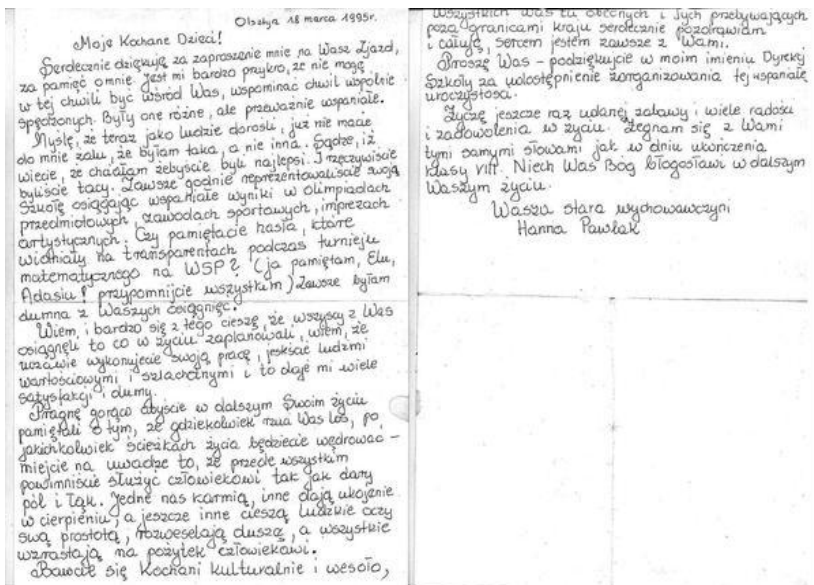 Olsztyn 18 marca 1995r.
Moje Kochane Dzieci!
Serdecznie dziękuję za zaproszenie mnie na Wasz Zjazd,
za pamięć o mnie. Jest mi bardzo przykro, że nie mogę
w tej chwili być wśród Was, wspominać chwil wspólnie
spędzonych. Były one różne, ale przeważnie wspaniałe.
Myślę, że teraz jako ludzie dorośli, już nie macie
do mnie żalu, że byłam taka, a nie inna. Sądzę, iż
wiecie, że chciałam żebyście byli najlepsi. I rzeczywiście
byliście tacy. Zawsze godnie reprezentowaliście swoją
Szkołę osiągając wspaniałe wyniki w olimpiadach
przedmiotowych, zawodach sportowych, imprezach
artystycznych. Czy pamiętacie hasła, które
widniały na transparentach podczas turnieju
matematycznego na WSP? (ja pamiętam, Elu,
Adasiu! przypomnijcie wszystkim) Zawsze byłam
dumna z Waszych osiągnięć.
Wiem, i bardzo się z tego cieszę, że wszyscy z Was
osiągnęli to co w życiu zaplanowali, wiem, że
uczciwie wykonujecie swoją pracę, jesteście ludźmi
wartościowymi i szlachetnymi i to daje mi wiele
satysfakcji i dumy.
Pragnę gorąco abyście w dalszym Swoim życiu
pamiętali o tym, że gdziekolwiek rzuci Was los, po
jakichkolwiek ścieżkach życia będziecie wędrować –
miejcie na uwadze to, że przede wszystkim
powinniście służyć człowiekowi tak jak dary
pól i łąk. Jedne nas karmią, inne dają ukojenie
w cierpieniu, a jeszcze inne cieszą ludzkie oczy
swą prostotą, rozweselają duszę, a wszystkie
wzrastają na pożytek człowiekowi.
Bawcie się Kochani kulturalnie i wesoło,
Wszystkich Was tu obecnych i Tych przebywających
poza granicami kraju serdecznie pozdrawiam
i całuję, sercem jestem zawsze z Wami.
Proszę Was – podziękujcie w moim imieniu Dyrekcji
Szkoły za udostępnienie zorganizowania tej wspaniałej
uroczystości.
Życzę jeszcze raz udanej zabawy i wiele radości
i zadowolenia w życiu. Żegnam się z Wami
tymi samymi słowami jak w dniu ukończenia
klasy VIII. Niech Was Bóg błogosławi w dalszym
Waszym życiu.
Wasza stara wychowawczyni
Hanna Pawlak